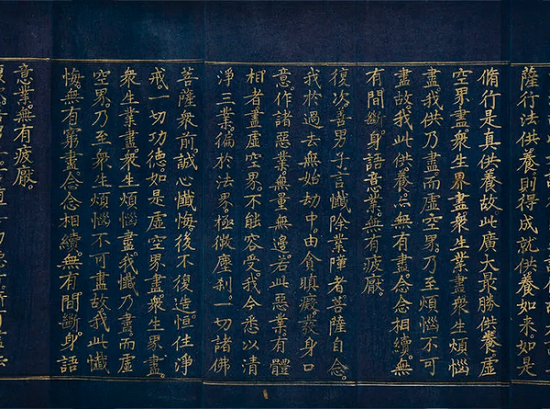 薩行法供養則得成就供養如来如是
脩行是真供養故此廣大最勝供養虛
空界盡衆生界盡衆生業盡衆生煩惱
盡我供乃盡而虛空界乃至煩惱不可
盡故我此供養亦無有盡念念相續無
有間斷身語意業無有疲厭
復次善男子言懺除業障者菩薩自念
我於過去無始劫中由貪瞋癡發身口
意作諸惡業無量無邊若此惡業有體
相者盡虛空界不能容受我今悉以清
淨三業徧於法界極微塵刹一切諸佛
菩薩衆前誠心懺悔後不復造恒住淨
戒一切功德如是虛空界盡衆生界盡
衆生業盡衆生煩惱盡我懺乃盡而虛
空界乃至衆生煩惱不可盡故我此懺
悔無有窮盡念念相續無有間斷身語
意業無有疲厭